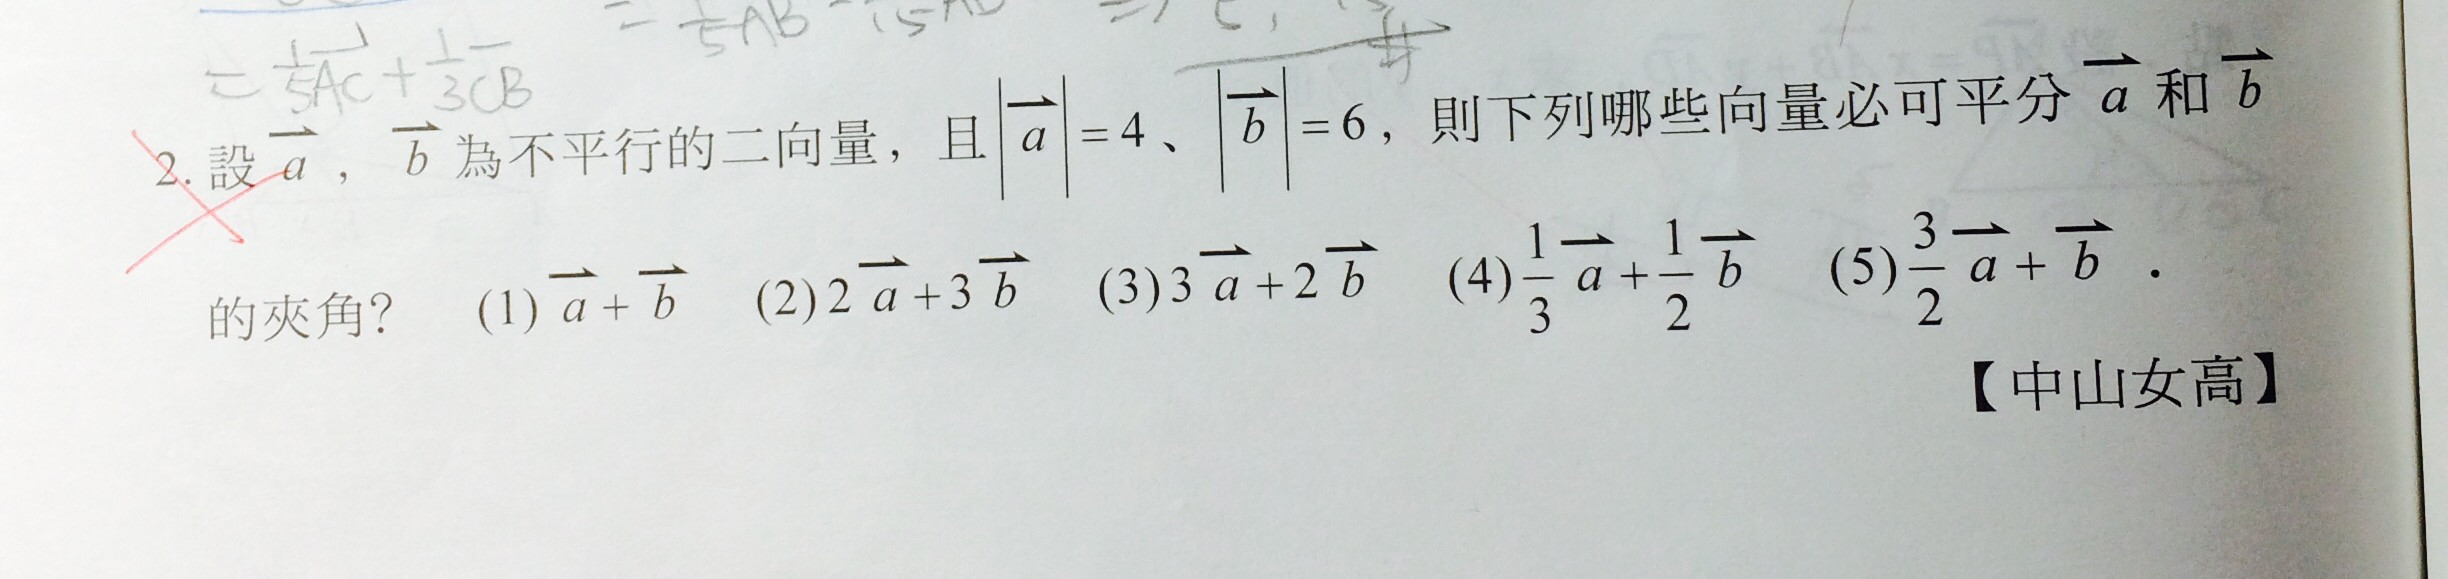 = 1/5 AB - 1/15 AB ⇒
= 1/5 AC + 1/3 CB
2. 設 a⃑ , b⃑ 為不平行的二向量, 且 |a⃑| = 4、|b⃑| = 6, 則下列哪些向量必可平分 a⃑ 和 b⃑
的夾角? (1) a⃑ + b⃑ (2) 2a⃑ + 3b⃑ (3) 3a⃑ + 2b⃑ (4) 1/3 a⃑ + 1/2 b⃑ (5) 3/2 a⃑ + b⃑ .
【中山女高】